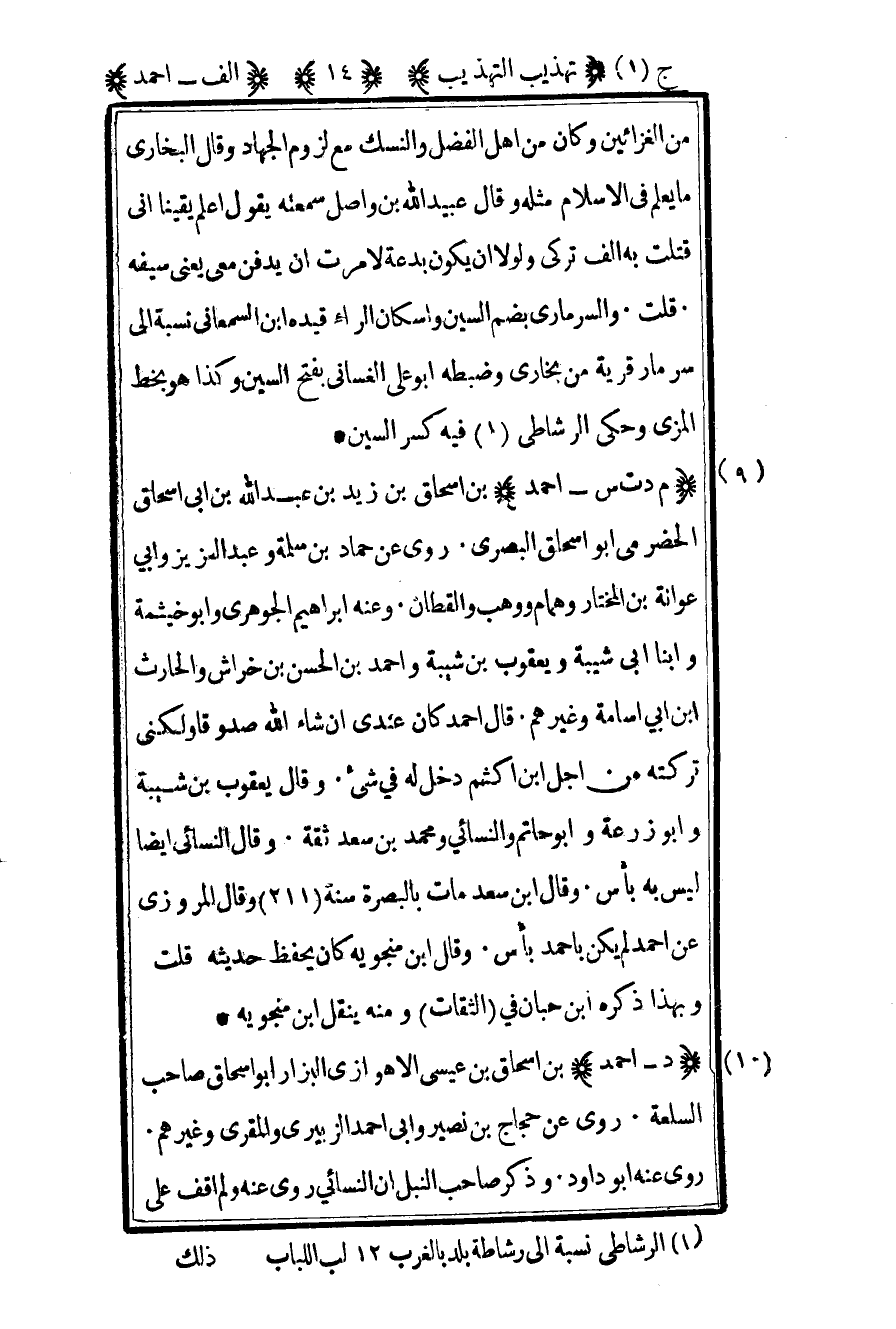 ج (١) ﴿ تهذيب التهذيب ﴾ ﴿ ١٤ ﴾ ﴿ الف ـ احمد ﴾
من الغزائين وكان من اهل الفضل والنسك مع لزوم الجهاد وقال البخارى
ما يعلم فى الاسلام مثله وقال عبيدالله بن واصل سمعته يقول اعلم يقينا انى
قتلت به الف تركى ولولا ان يكون بدعة لامرت ان يدفن معى يعنى سيفه
٠ قلت ٠ والسرمارى بضم السين واسكان الراء قيده ابن السمعانى نسبة الى
سرمار قرية من بخارى وضبطه ابو على الغسانى بفتح السين وكذا هو بخط
المزى وحكى الرشاطى (١) فيه كسر السين •
(٩) ﴿ م د ت س ـ احمد ﴾ بن اسحاق بن زيد بن عبدالله بن ابى اسحاق
الحضرمى ابو اسحاق البصرى ٠ روى عن حماد بن سلمة و عبد العزيز وابي
عوانة بن المختار وهمام ووهب والقطان ٠ وعنه ابراهيم الجوهرى وابو خيثمة
و ابنا ابى شيبة و يعقوب بن شيبة و احمد بن الحسن بن خراش والحارث
ابن ابي اسامة وغيرهم ٠ قال احمد كان عندى ان شاء الله صدوقا ولكنى
تركته من اجل ابن اكثم دخل له في شئ ٠ و قال يعقوب بن شيبة
و ابو زرعة و ابوحاتم والنسائي ومحمد بن سعد ثقة ٠ و قال النسائى ايضا
ليس به بأس ٠ وقال ابن سعد مات بالبصرة سنة (٢١١) وقال المروزى
عن احمد لم يكن باحمد بأس ٠ وقال ابن منجويه كان يحفظ حديثه قلت
و بهذا ذكره ابن حبان في (الثقات) و منه ينقل ابن منجويه •
(١٠) ﴿ د ـ احمد ﴾ بن اسحاق بن عيسى الاهوازى البزار ابو اسحاق صاحب
السلعة ٠ روى عن حجاج بن نصير وابى احمد الزبيرى والمقرى وغيرهم ٠
روى عنه ابو داود ٠ و ذكر صاحب النبل ان النسائي روى عنه ولم اقف على
(١) الرشاطى نسبة الى رشاطة بلد بالغرب ١٢ لب اللباب ذلك